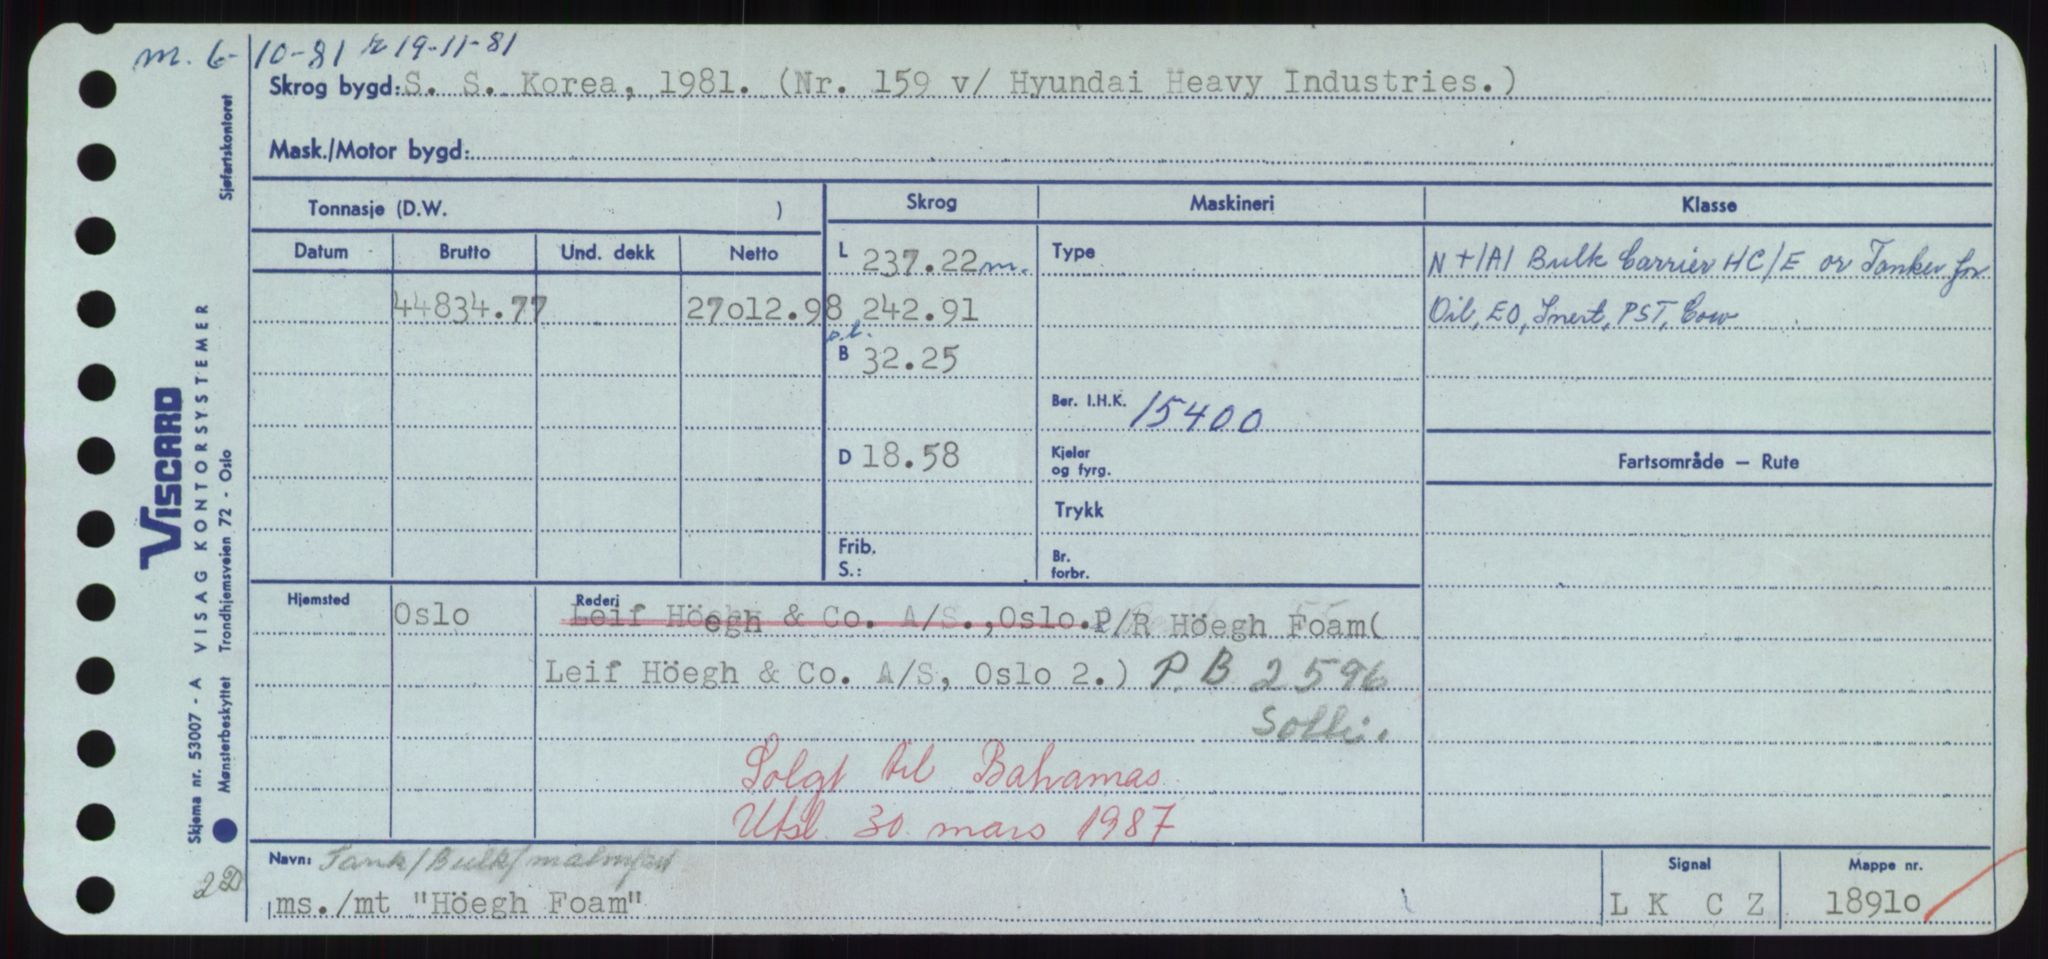 m. 6-10-81 r 19-11-81
Skrog bygd: S. S. Korea, 1981. (Nr. 159 v/ Hyundai Heavy Industries.)
Mask./Motor bygd:
Tonnasje (D.W. )
Skrog
Maskineri
Klasse
Datum
Brutto
Und. dekk
Netto
44834.77
27o12.98
L 237.22 m.
242.91
p.l.
B 32.25
D 18.58
Frib.
S.:
Type
Ber. I.H.K. 15400
Kjeler
og fyrg.
Trykk
Br.
forbr.
N +1A1 Bulk Carrier HC/E or Tanker for
Oil, EO, Inert, PST, Cow
Fartsområde — Rute
Hjemsted
Oslo
Rederi
Leif Höegh & Co. A/S.,Oslo. P/R Höegh Foam(
Leif Höegh & Co. A/S, Oslo 2.) P.B 2596
Solli.
Solgt til Bahamas
Utsl. 30. mars 1987
Navn: Tank/Bulk/malm/
ms./mt "Höegh Foam"
Signal
L K C Z
Mappe nr.
1891o
Sjøfartskontoret
VISCARD
VISAG KONTORSYSTEMER
Trondhjemsveien 72 - Oslo
Skjema nr. 53007 - A
Mønsterbeskyttet
220